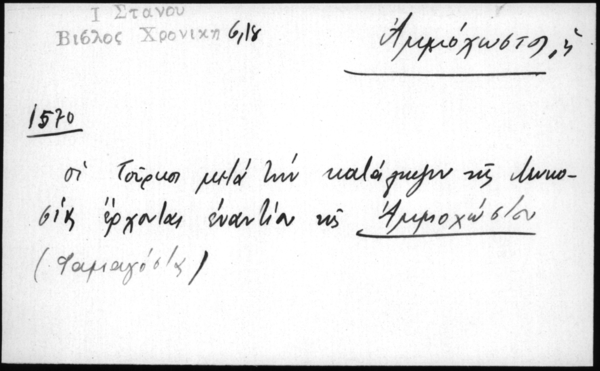 Ι Στανου
Βιβλος Χρονικη 6,18
Ἀμμόχωστος, ἡ
1570
οἱ Τοῦρκοι μετά τήν κατάληψιν τῆς Λευκω-
σίας ἔρχονται ἐναντίον τῆς Ἀμμοχώστου
(Φαμαγόστας)